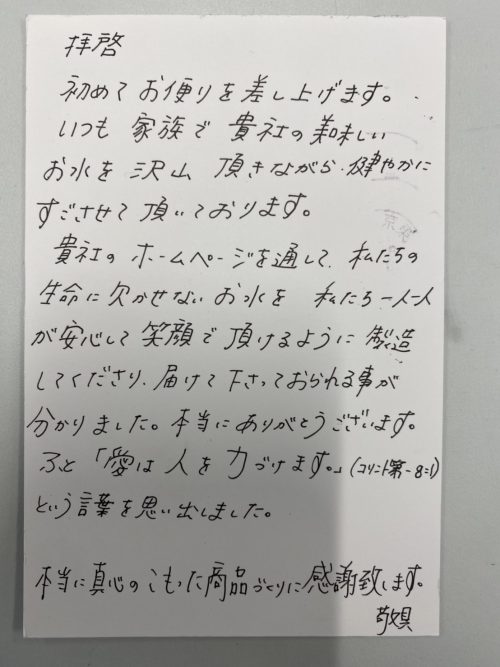 拝啓
初めて お便りを 差し上げます。
いつも 家族で 貴社の美味しい
お水を 沢山 頂きながら、健やかに
すごさせて 頂いております。
貴社の ホームページを通して、私たちの
生命に欠かせない お水を 私たち一人一人
が安心して 笑顔で 頂けるように 製造
してくださり、届けて下さっておられる事が
分かりました。本当に ありがとうございます。
ふと「愛は 人を 力づけます。」(コリント第一8:1)
という言葉を思い出しました。
本当に真心のこもった商品づくりに感謝致します。
敬具